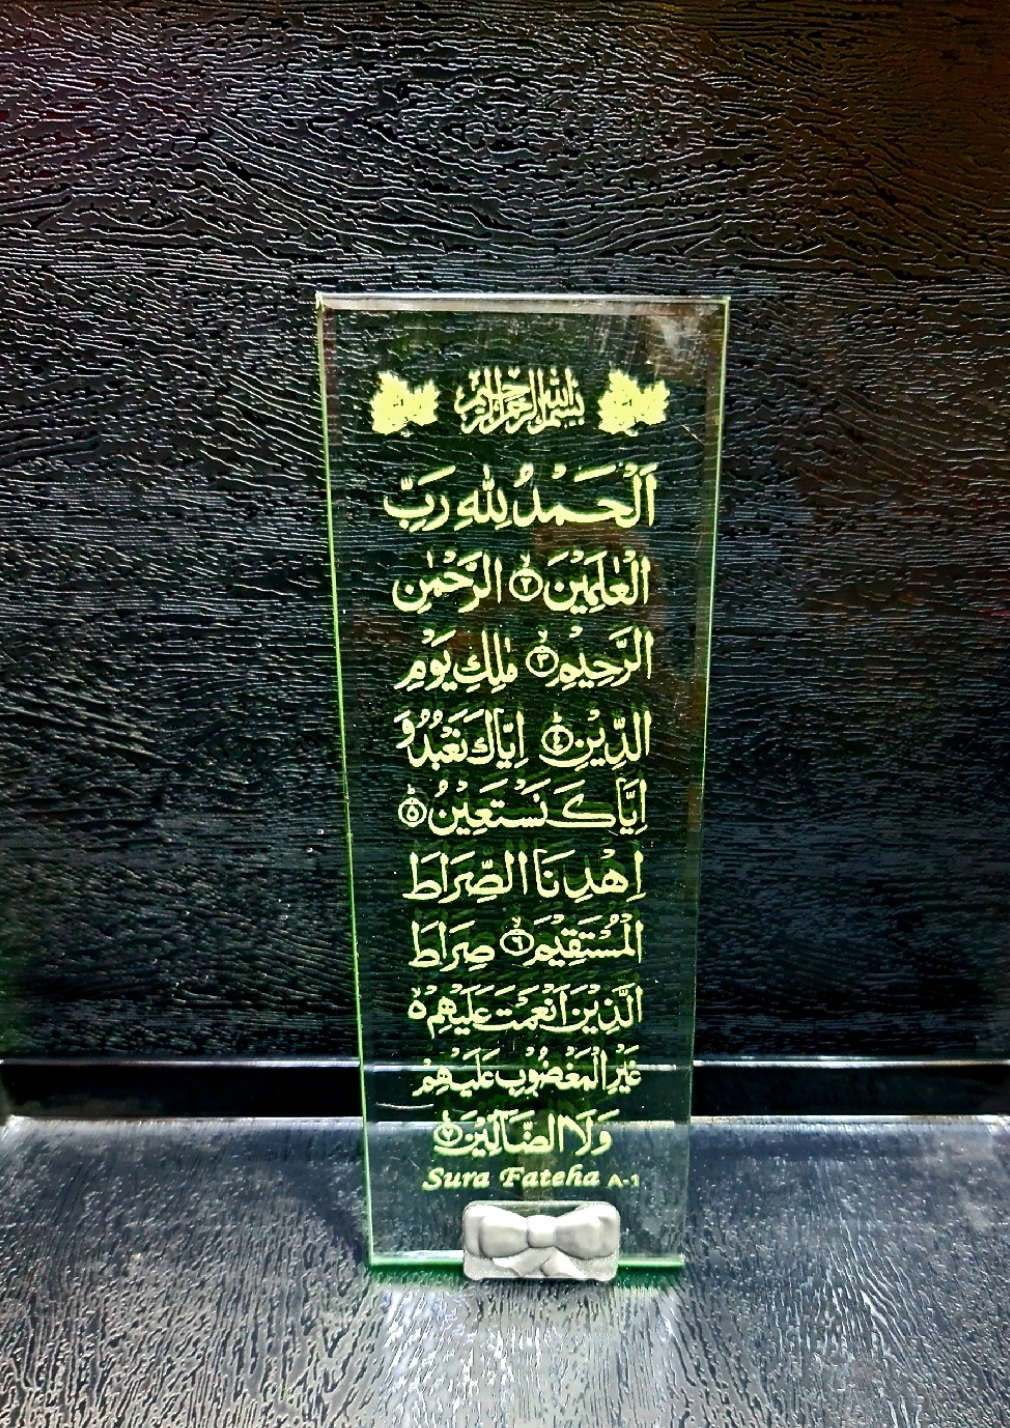 بسم الله الرحمن الرحيم
اَلْحَمْدُ لِلّٰهِ رَبِّ
الْعٰلَمِيْنَ ۙ﴿۲﴾ الرَّحْمٰنِ
الرَّحِيْمِ ۙ﴿۳﴾ مٰلِكِ يَوْمِ
الدِّيْنِ ؕ﴿٤﴾ اِيَّاكَ نَعْبُدُ وَ
اِيَّاكَ نَسْتَعِيْنُ ؕ﴿۵﴾
اِهْدِنَا الصِّرَاطَ
الْمُسْتَقِيْمَ ۙ﴿٦﴾ صِرَاطَ
الَّذِيْنَ اَنْعَمْتَ عَلَيْهِمْ ۙ۬ە
غَيْرِ الْمَغْضُوْبِ عَلَيْهِمْ
وَلَا الضَّآلِّيْنَ ﴿۷﴾
Sura Fateha A-1